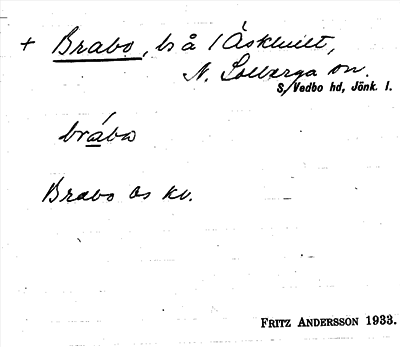 + Brabo, ls å / Äskhult,
N. Solberga sn.
S/Vedbo hd, Jönk. l.
brábo
Brabo os kv.
FRITZ ANDERSSON 1933.